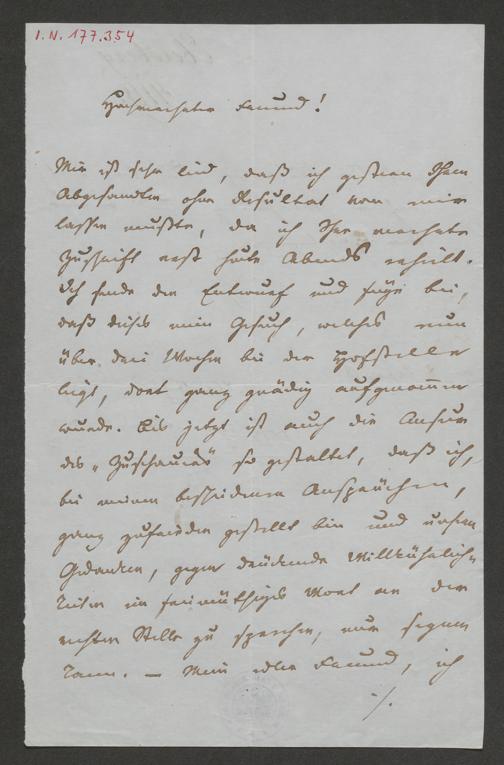 I. N. 177.354
Hochverehrter Freund!
Mir ist sehr leid, daß ich gestern Ihren
Abgesandten ohne Resultat von mir
lassen mußte, da ich Ihre werthe
Zuschrift erst heute Abends erhielt.
Ich sende den Entwurf und füge bei,
daß dieses mein Gesuch, welches nun
über drei Wochen bei der Hofstelle
liegt, dort ganz gnädig aufgenommen
wurde. Bis jetzt ist auch die Censur
des „Zuschauers" so gestaltet, daß ich,
bei meinen bescheidenen Ansprüchen,
ganz zufrieden gestellt bin und unsern
Gedanken, gegen drückende Willkührlich-
keiten ein freimüthiges Wort an der
rechten Stelle zu sprechen, nur segnen
kann. — Mein edler Freund, ich
./.